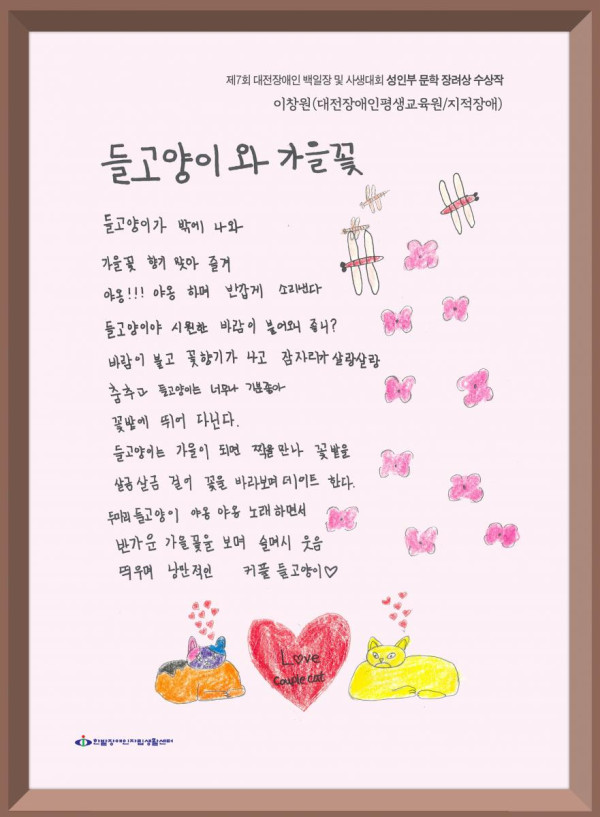 제7회 대전장애인 백일장 및 사생대회 성인부 문학 장려상 수상작
이창원(대전장애인평생교육원/지적장애)
들고양이와 가을꽃
들고양이가 밖에 나와
가을꽃 향기 맞아 즐겨
야옹!!! 야옹 하며 반갑게 소리낸다
들고양이야 시원한 바람이 불어오니 좋니?
바람이 불고 꽃향기가 나고 잠자리가 살랑살랑
춤추고 들고양이는 너무나 기분좋아
꽃밭에 뛰어 다닌다.
들고양이는 가을이 되면 짝을 만나 꽃밭을
살금살금 걸어 꽃을 바라보며 데이트 한다.
두마리 들고양이 야옹 야옹 노래하면서
반가운 가을꽃을 보며 슬며시 웃음
띄우며 낭만적인 커플 들고양이♡
Love
Couple cat
한밭장애인자립생활센터